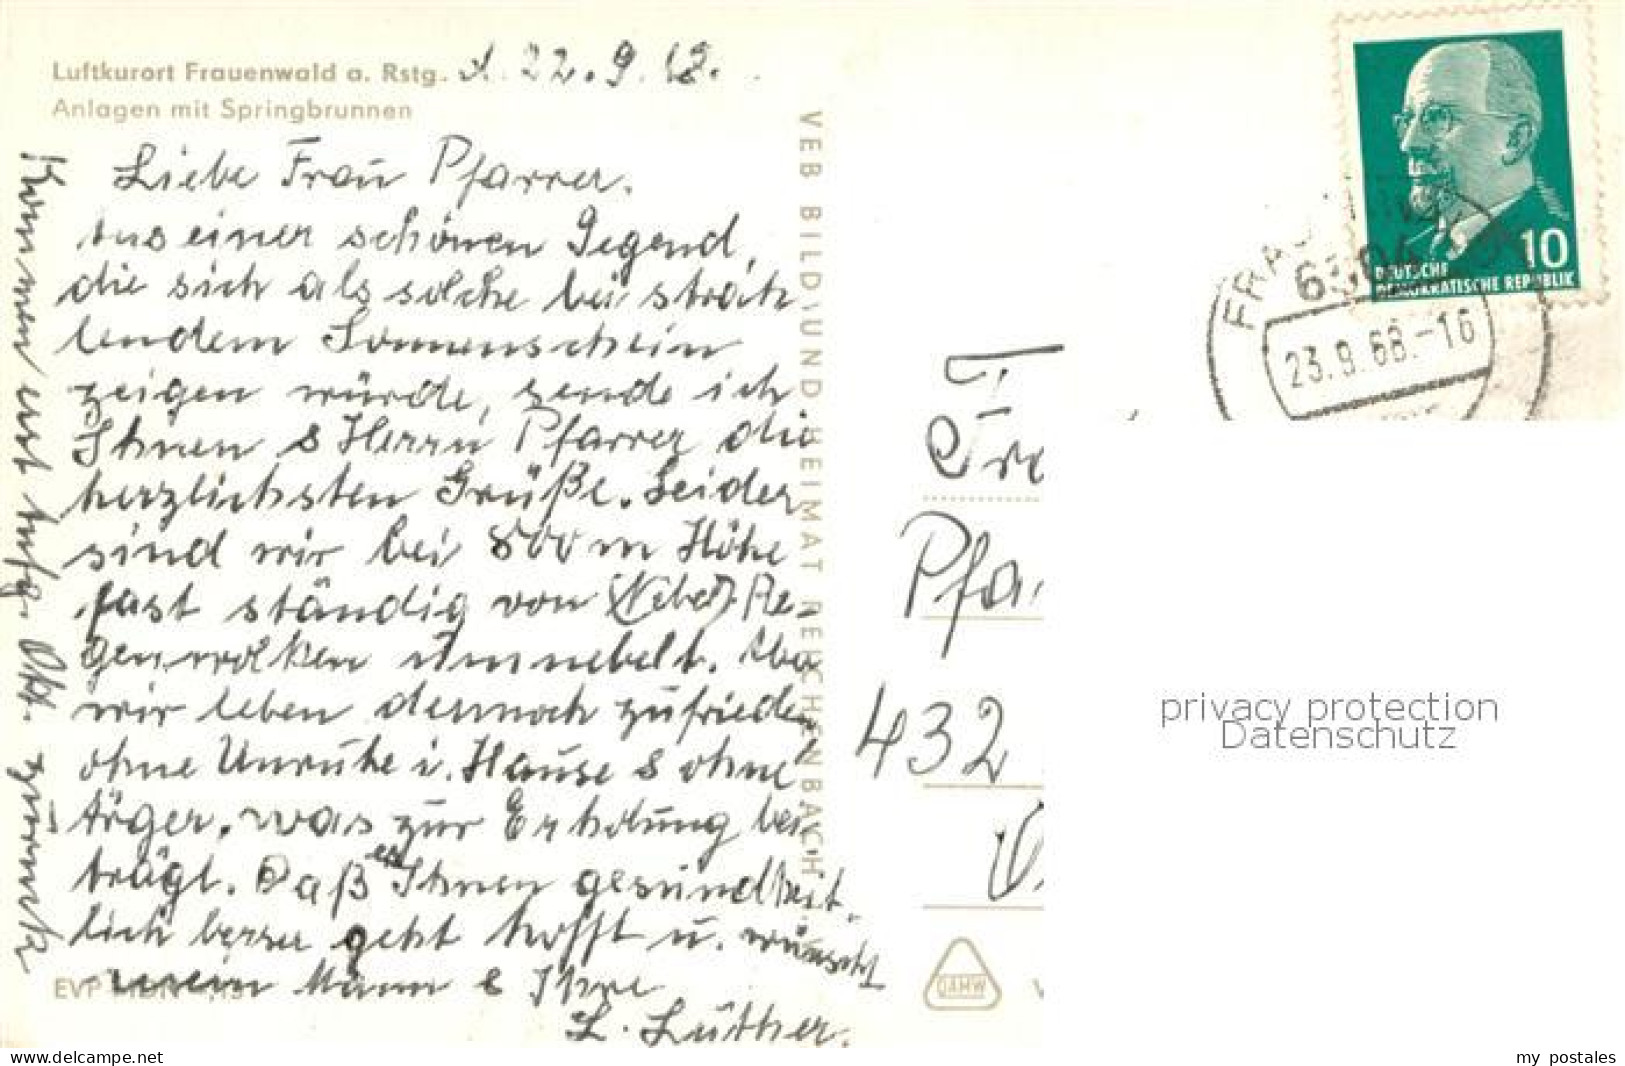 Luftkurort Frauenwald a. Rstg.
d. 22.9.68.
Anlagen mit Springbrunnen
Liebe Frau Pfarrer.
Aus einer schönen Gegend,
die sich als solche bei strah
lendem Sonnenschein
zeigen würde, sende ich
Ihnen & Herrn Pfarrer die
herzlichsten Grüße. Leider
sind wir bei 800 m Höhe
fast ständig von (Nebel) Re-
genwolken umnebelt. Aba
wir leben dennoch zufrieden
ohne Unruhe i. Hause & ohne
Ärger, was zur Erholung bei-
trägt. Daß es Ihnen gesundheit-
lich besser geht hofft u. wünscht
mein Mann & Ihre
L. Luther.
Kommen erst Anfg. Okt. zurück
EVP
VEB BILD UND HEIMAT REICHENBACH
10
DEUTSCHE
DEMOKRATISCHE REPUBLIK
FRA
23.9.68.-16
Pfa
432
privacy protection
Datenschutz
akpool.de
my postales